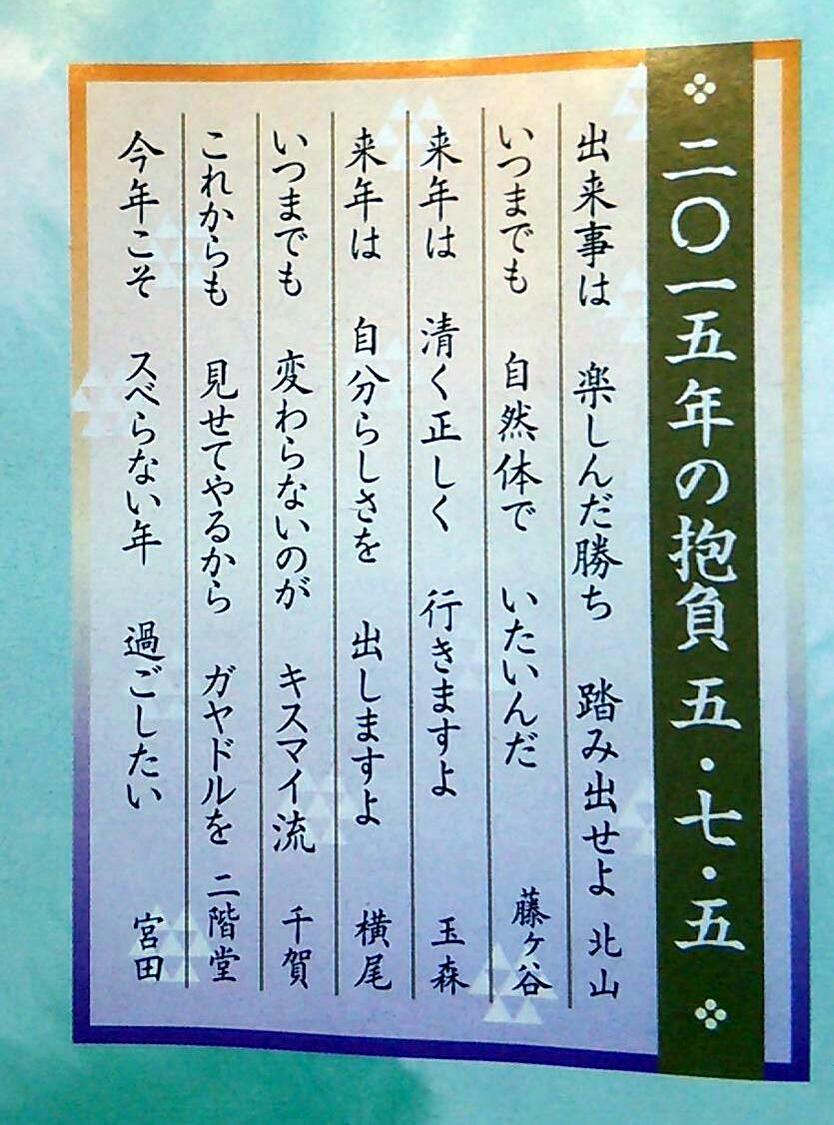 二〇一五年の抱負 五・七・五
出来事は 楽しんだ勝ち 踏み出せよ 北山
いつまでも 自然体で いたいんだ 藤ヶ谷
来年は 清く正しく 行きますよ 玉森
来年は 自分らしさを 出しますよ 横尾
いつまでも 変わらないのが キスマイ流 千賀
これからも 見せてやるから ガヤドルを 二階堂
今年こそ スベらない年 過ごしたい 宮田